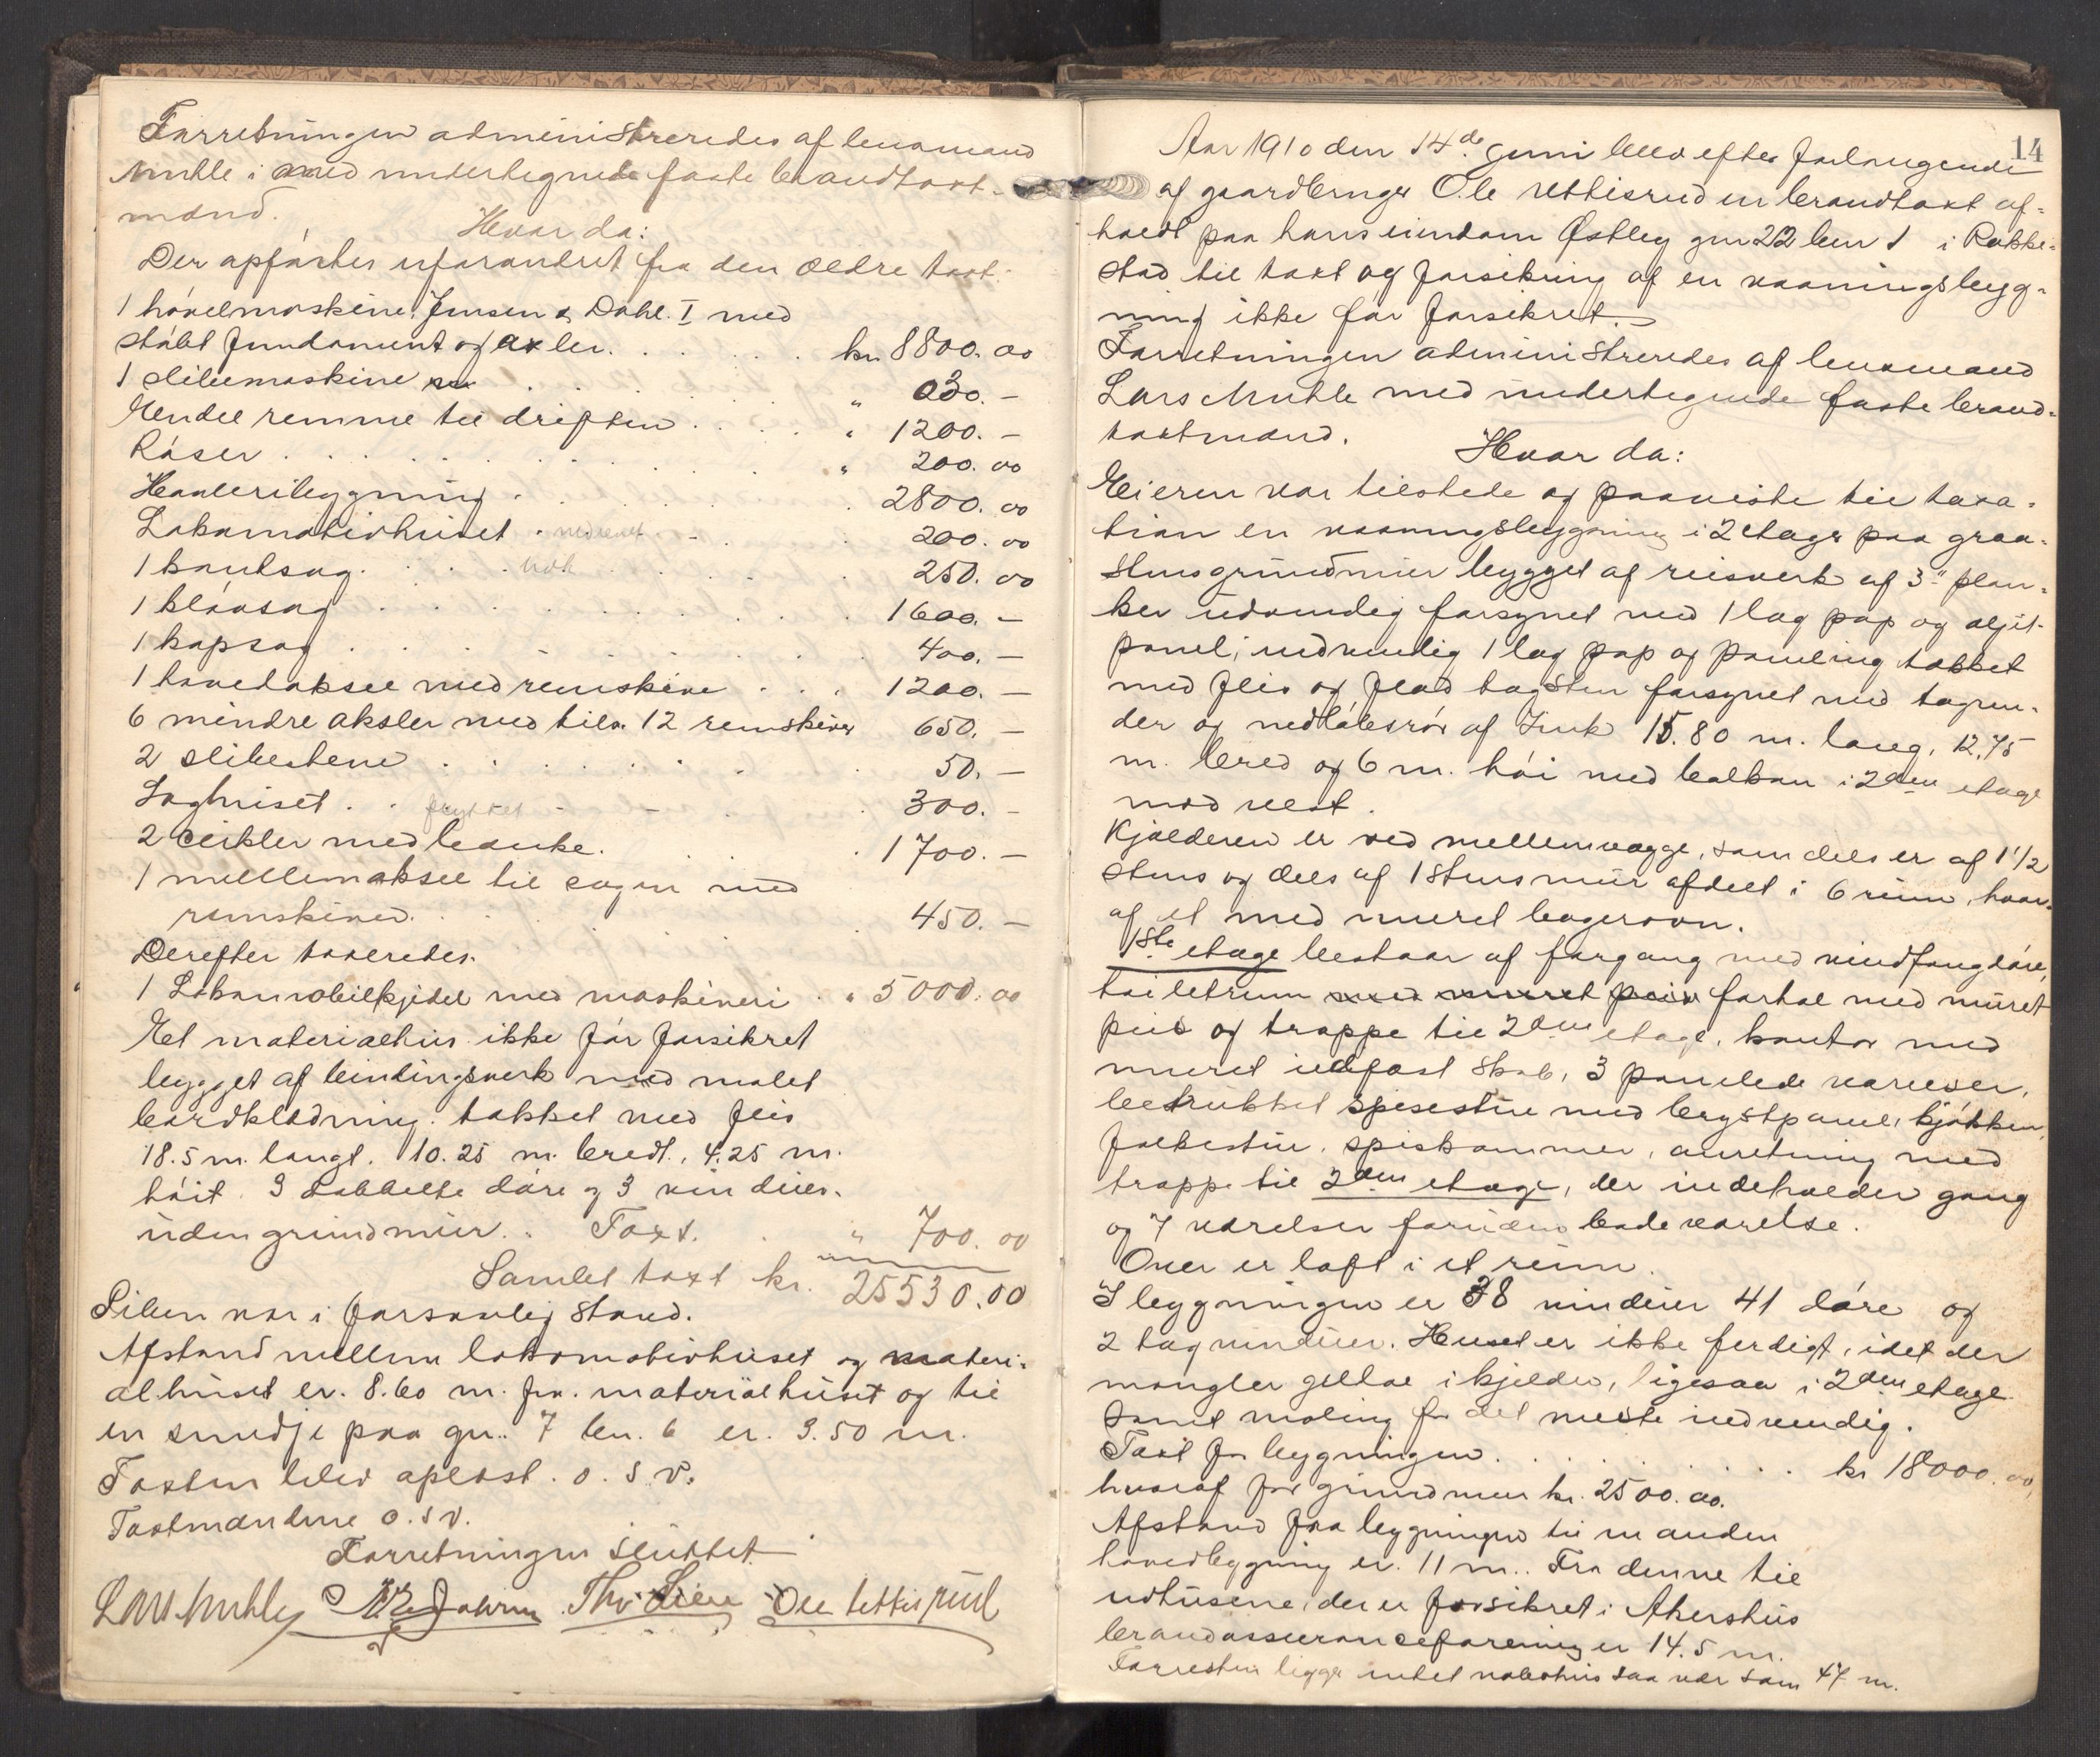 Forretningen administreredes af lensmand
Muhle i med undertegnede faste brandtaxt-
mænd.
Hvor da:
Der opførtes uforandret fra den ældre taxt:
1 høvelmaskine Jensen & Dahl. I med
støbt fundament og axler. kr. 8800.00
1 slibemaskine " 030.-
Endel remme til driften " 1200.-
Råser " 200.00
Høvleribygning 2800.00
Lokomotivhuset nedrevet 200.00
1 bandsag 250.00
1 kløvsag 1600.-
1 kapsag 400.-
1 hovedaksel med remskive 1200.-
6 mindre aksler med tils. 12 remskiver 650.-
2 slibestene 50.-
Saghuset flyttet 300.-
2 cirkler med bænke. 1700.-
1 mellemaksel til sagen med
remskiver. 450.-
Derefter taxeredes.
1 Lokomobilkjedel med maskineri " 5000.00
Et materialhus ikke før forsikret
bygget af bindingsverk med malet
bordklædning. tækket med flis
18.5 m. langt. 10.25 m. bredt., 4.25 m.
høit. 3 dobbelte døre og 3 vinduer.
uden grundmur. Taxt. " 700.00
Samlet taxt kr. 25530.00
Piben var i forsvarlig stand.
Afstand mellem lokomotivhuset og materi-
alhuset er. 8.60 m. fra. materialhuset og til
en smedje paa gn. 7 bn. 6 er. 3.50 m.
Taxten blev oplæst. o. s. v.
Taxtmændene o. s. v.
Forretningen sluttet
Lars Muhle Thv. Lien Ole Uttisrud
14
Aar 1910 den 14de juni blev efter forlangende
af gaardbruger Ole Uttisrud en brandtaxt af-
holdt paa hans eiendom Østbg gn 22 bn 1 i Rakke-
stad til taxt og forsikring af en vaaningsbyg-
ning ikke før forsikret.
Forretningen administreredes af lensmand
Lars Muhle med undertegnede faste brand-
taxtmænd. Hvor da:
Eieren var tilstede og paaviste til taxa-
tion en vaaningsbygning i 2 etager paa graa-
stensgrundmur bygget af reisverk af 3" plan-
ker udvendig forsynet med 1 lag pap og
panel, indvendig 1 lag pap og paneling tækket
med flis og flad tagsten forsynet med tagren-
der og nedløbsrør af Zink 15.80 m. lang, 12.75
m. bred og 6 m. høi med balkon i 2den etage
mod vest.
Kjælderen er ved mellemvægge, som dels er af 1 1/2
stens og dels af 1 stens mur afdelt i 6 rum, hvor-
af et med muret bagerovn.
1ste etage bestaar af forgang med vindfangdøre,
toiletrum med muret peis forhal med muret
peis og trappe til 2den etage, kontor med
muret ildfast skab, 3 panelede værelser,
betrukket spisestue med brystpanel, kjøkken,
folkestue, spiskammer, anretning med
trappe til 2den etage, der indeholder gang
og 7 værelser foruden badeværelse.
Over er loft i et rum.
I bygningen er 38 vinduer 41 døre og
2 tagvinduer. Huset er ikke ferdigt, idet der
mangler gulve i kjelder, ligesaa i 2den etage
samt maling for det meste indvendig.
Taxt for bygningen kr 18000.00,
hvoraf for grundmur kr. 2500.00.
Afstand fra bygningen til en anden
hovedbygning er. 11 m.. Fra denne til
udhusene, der er forsikret i Akershus
brandassuranceforening er 14.5 m.
Forresten ligger intet nabohus saa nær som 47 m.